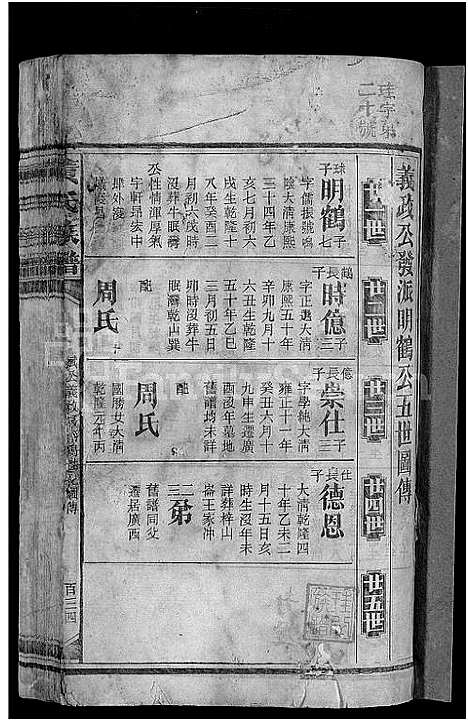 珠字第
二十號
義政公發派明鶴公五世圖傳
廿一世
廿二世
廿三世
廿四世
廿五世
球子
明鶴
子七
字儒振號鳴
陰大清康熙
三十四年乙
亥七月初六
戌生乾隆十
八年癸酉二
月初六戌時
沒葬牛眠灣
公性情渾厚氣
宇軒昂
鶴長子
時億
子三
字正遠大清
康熙五十年
辛卯九月十
六丑生乾隆
五十年乙巳
三月初五日
卯時沒葬牛
眠灣乾山巽
配
周氏
億長子
崇仕
子三
字學純大清
雍正十一年
癸丑六月十
九申生遷廣
西沒年墓地
舊譜均未詳
配
周氏
國勝女大清
乾隆元年丙
仕長子
德恩
大清乾隆四
十年乙未二
月十五日亥
時生沒年未
詳葬梓山
崙王家沖
二三
弟
舊譜同父
遷居廣西
氏族譜
百三四